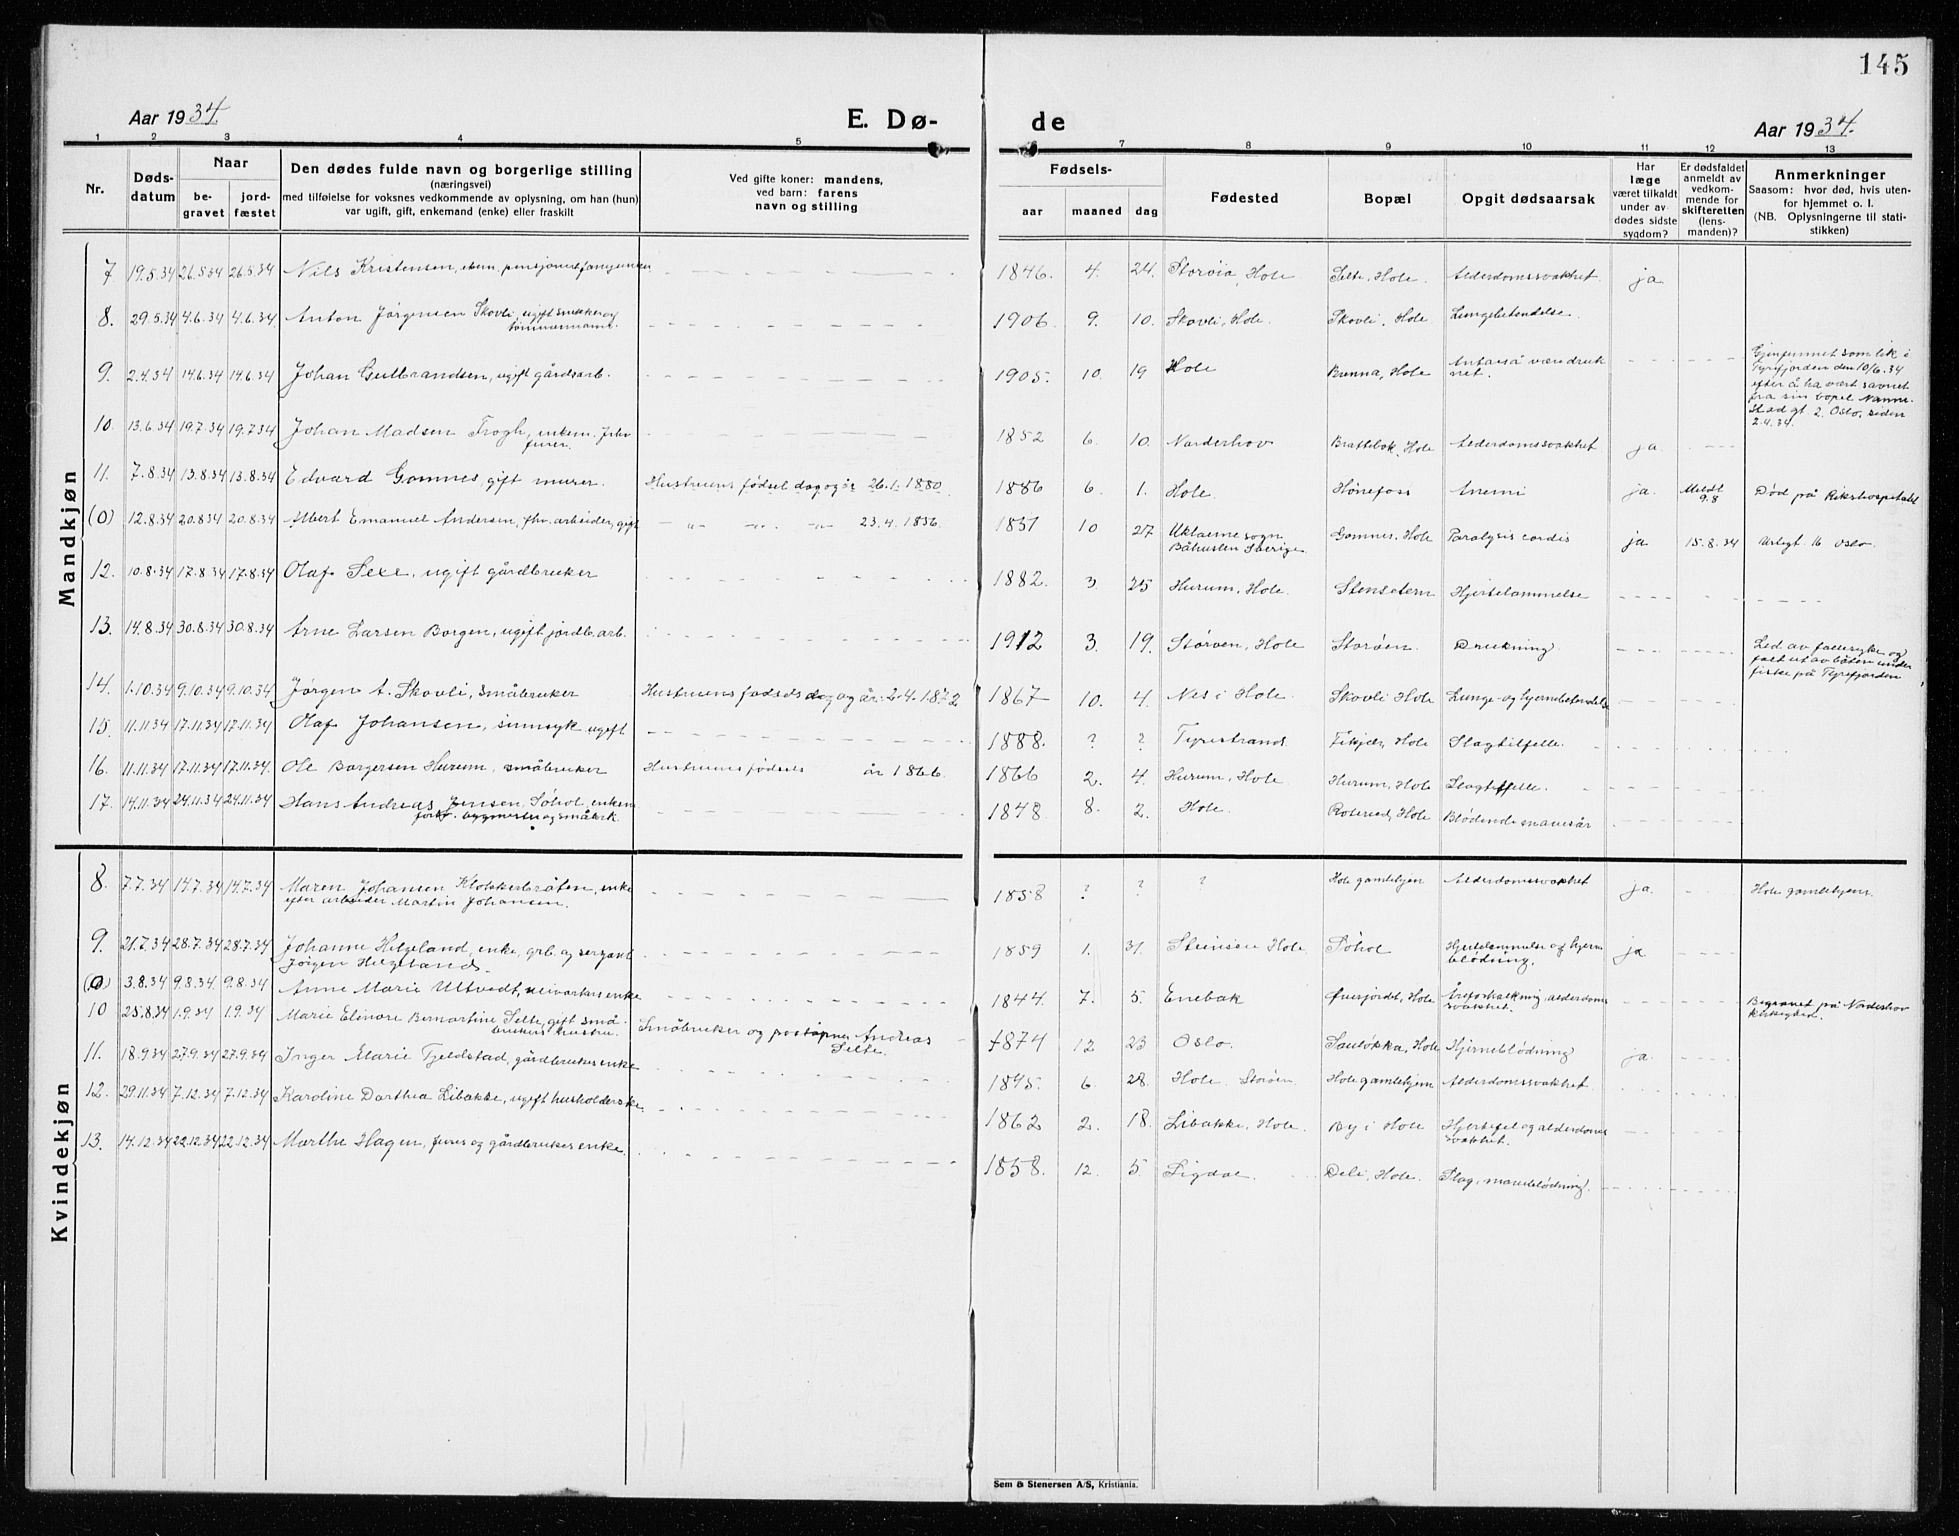 145
Aar 1934. E. Dø- de Aar 1934.
1 2 3 4 5 7 8 9 10 11 12 13
Nr.
Døds-
datum
Naar
be-
gravet
jord-
fæstet
Den dødes fulde navn og borgerlige stilling
(næringsvei)
med tilføielse for voksnes vedkommende av oplysning, om han (hun)
var ugift, gift, enkemand (enke) eller fraskilt
Ved gifte koner: mandens,
ved barn: farens
navn og stilling
Fødsels-
aar maaned dag
Fødested
Bopæl
Opgit dødsaarsak
Har
læge
været tilkaldt
under av
dødes sidste
sygdom?
Er dødsfaldet
anmeldt av
vedkom-
mende for
skifteretten
(lens-
manden)?
Anmerkninger
Saasom: hvor død, hvis uten-
for hjemmet o. l.
(NB. Oplysningerne til stati-
stikken)
Mandkjøn
7 19.5.34 26.5.34 26.5.34 Nils Kristensen, 1846. 4. 24. Storøia, Hole Selte, Hole. Alderdomssvakhet ja
8. 29.5.34 4.6.34 4.6.34 Anton Jørgensen Skovli, ugift snekker og
tømmermann. 1906. 9. 10. Skovli, Hole. Skovli, Hole Lungebetendelse
9. 2.4.34 14.6.34 14.6.34 Johan Gulbrandsen, ugift gårdsarb. 1905. 10. 19 Hole Brenna, Hole Antas å være druk
net. Gjenfunnet som lik i
Tyrifjorden den 10/6.34
efter å ha vært savnet
fra sin bopel Nanne-
stad gt. 2. Oslo, siden
2.4.34.
10. 13.6.34 19.7.34 19.7.34 Johan Madsen Trogh, enkem. fhv.
furer. 1852 6. 10. Norderhov Brattebak, Hole Alderdomssvakhet ja
11. 7.8.34 13.8.34 13.8.34 Edvard Gomnes, gift murer. Hustruens fødsel dag og år 26.1.1880. 1886 6. 1. Hole. Hønefoss Anemi ja. Meldt
9.8 Død på Rikshospitalet
(0) 12.8.34 20.8.34 20.8.34 Albert Emanuel Andersen, fhv. arbeider, gift 23.4.1856. 1851 10 27 sogn
Båhuslen Sverige Gomnes, Hole Paralysis cordis ja 15.8.34 16 Oslo.
12. 10.8.34 17.8.34 17.8.34 Olaf Sexe, ugift gårdbruker 1882. 3. 25 Hurum, Hole. Stensetern Hjertelammelse
13. 14.8.34 30.8.34 30.8.34 Arne Larsen Borgen, ugift jordb. arb. 1912 3. 19. Storøen, Hole Storøen. Drukning Led av fallesyke og
falt ut av båten under
fiske på Tyrifjorden
14. 1.10.34 9.10.34 9.10.34 Jørgen A. Skovli, småbruker Hustruens fødsels dag og år: 2.4.1872 1867 10. 4. Nes i Hole. Skovli Hole Lunge- og hjernebetendelse
15. 11.11.34 17.11.34 17.11.34 Olaf Johansen, sinnsyk ugift 1888. ? ? Tyristrand Fekjær, Hole Slagtilfelle.
16. 11.11.34 17.11.34 17.11.34. Ole Borgersen Hurum, småbruker Hustruens fødsels år 1866. 1866 2. 4. Hurum, Hole. Hurum, Hole Slagtilfelle.
17. 14.11.34 24.11.34 24.11.34 Hans Andreas Jensen, Søhol, enkem
forh. bygmester og småbrk. 1848 8. 2. Hole. Roterud, Hole Blødende mavesår
Kvindekjøn
8. 7.7.34 14.7.34 14.7.34 Maren Johansen Klokkerbråten, enke
efter arbeider Martin Johansen. 1858 ? ? ? Hole gamlehjem Alderdomssvakhet ja. Hole gamlehjem.
9. 21.7.34 28.7.34 28.7.34 Johanne Helgeland, enke, grb. og sergeant
Jørgen Helgelands. 1859 1. 31. Steinsen Hole Søhol Hjertelammelse og hjerne
blødning. ja
(0) 3.8.34 9.8.34 9.8.34 Anne Marie Ultvedt, veivokters enke 1844. 7. 5. Enebak Øverjordet, Hole Åreforkalkning, alderdoms
svakhet. Begravet på Norderhov
kirkegård.
10 25.8.34 1.9.34 1.9.34 Marie Elinore Bernartine Selte, gift små-
brukers hustru. Småbruker og postopner Andreas
Selte. 1874 12 23 Oslo. Sauløkka, Hole Hjerneblødning ja.
11. 18.9.34 27.9.34 27.9.34 Inger Marie Fjeldstad, gårdbrukers enke 1845. 6. 28. Hole. Storøen. Hole gamlehjem Alderdomssvakhet.
12. 29.11.34 7.12.34 7.12.34 Karoline Dorthea Libakke, ugift husholderske. 1862 2. 18. Libakke, Hole. By i Hole Hjertefeil og alderdoms
svakhet.
13. 14.12.34 22.12.34 22.12.34 Marthe Hagen, furer og gårdbrukers enke. 1858. 12. 5. Sigdal. Deli, Hole. Slag, maveblødning.
Sem & Stenersen A/S, Kristiania.